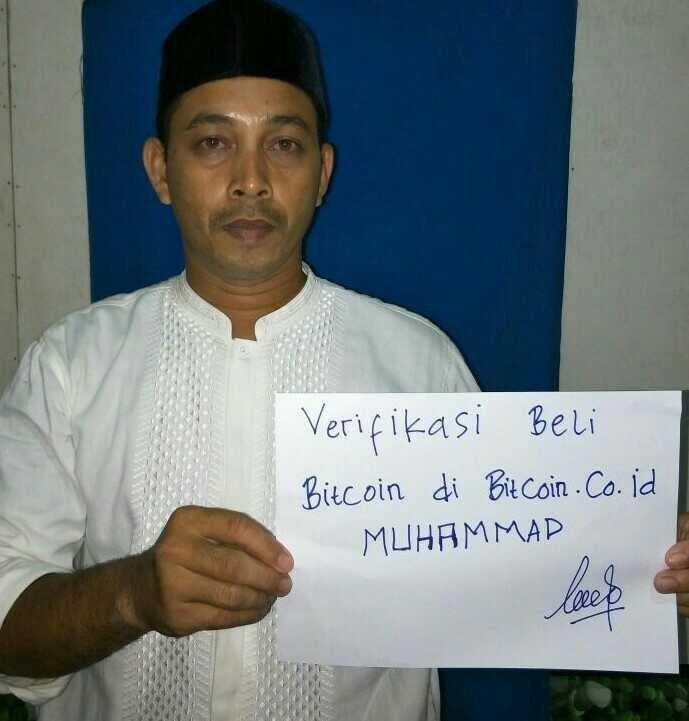 Verifikasi Beli
Bitcoin di Bitcoin.Co.id
MUHAMMAD